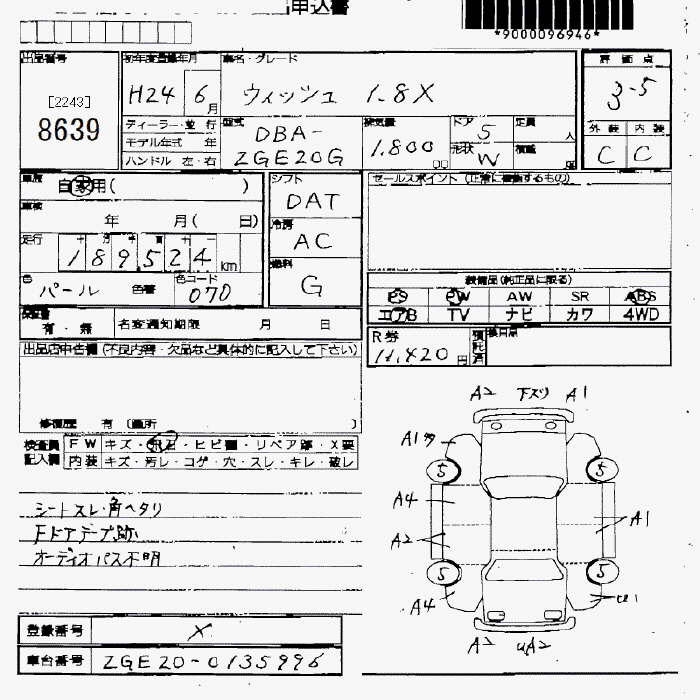 申込書
*9000096946*
出品番号
[2243]
8639
初年度登録年月
H24 6月
車名・グレード
ウィッシュ 1.8X
評価点
3.5
ディーラー・並行
モデル年式 年
ハンドル 左・右
型式
DBA-
ZGE20G
排気量
1,800
cc
ドア 5
形状 W
定員 人
積載
外装 内装
C C
車歴
自家用( )
車検
年 月( 日)
走行
十 万 千 百 十 一
189,524 km
色
パール
色替
色コード
070
シフト
DAT
冷房
AC
燃料
G
セールスポイント (正常に稼働するもの)
装備品(純正品に限る)
PS PW AW SR ABS
エアB TV ナビ カワ 4WD
保証書
有・無
名変通知期限 月 日
R券
11,420円
預託済
出品店申告欄(不良内容・欠品など具体的に記入して下さい)
修復歴 有 (箇所 )
検査員記入欄
FW キズ・飛石・ヒビ割・リペア跡・X要
内装 キズ・汚レ・コゲ・穴・スレ・キレ・破レ
シートスレ・角ヘタリ
Fドアテープ跡
オーディオパス不明
登録番号
X
車台番号
ZGE20-0135996
A2 下スリ A1
A1タ
5 5
A4
A2
A1
5 5
A4
U1
A2 UA2